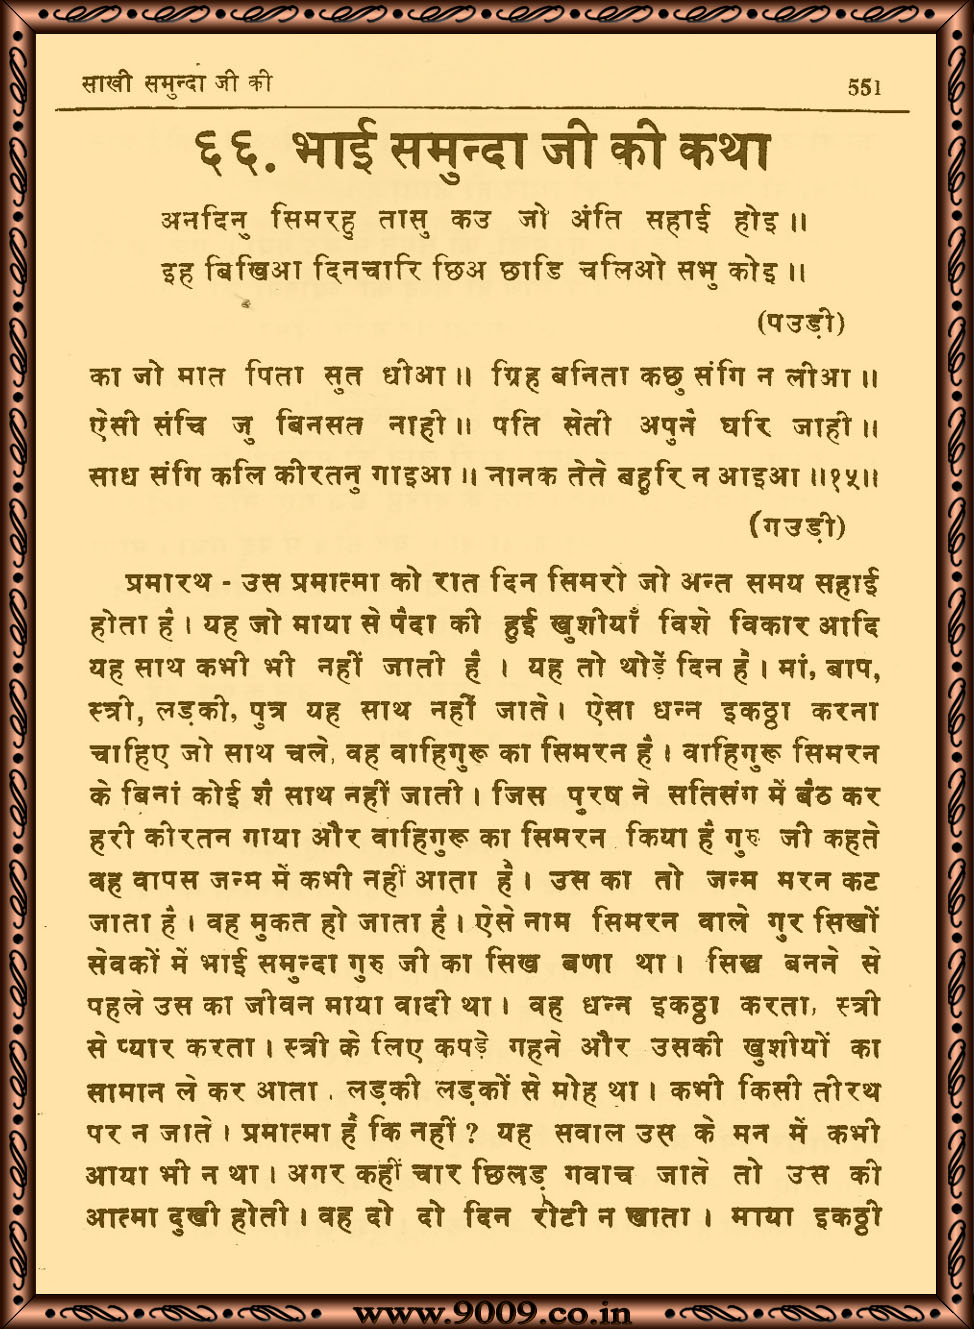 साखी समुन्दा जी की 551
६६. भाई समुन्दा जी की कथा
अनदिनु सिमरहु तासु कउ जो अंति सहाई होइ ॥
इह बिखिआ दिनचारि छिअ छाडि चलिओ सभु कोइ ॥
(पउड़ी)
का जो मात पिता सुत धीआ ॥ ग्रिह बनिता कछु संगि न लीआ ॥
ऐसी संचि जु बिनसत नाही ॥ पति सेती अपुनै घरि जाही ॥
साध संगि कलि कीरतनु गाइआ ॥ नानक तेते बहुरि न आइआ ॥१५॥
(गउड़ी)
प्रमारथ - उस प्रमात्मा को रात दिन सिमरो जो अन्त समय सहाई
होता है । यह जो माया से पैदा की हुई खुशीयाँ विशे विकार आदि
यह साथ कभी भी नहीं जाती है । यह तो थोड़ें दिन है । मां, बाप,
स्त्री, लड़की, पुत्र यह साथ नहीं जाते । ऐसा धन्न इकठ्ठा करना
चाहिए जो साथ चले, वह वाहिगुरू का सिमरन है । वाहिगुरू सिमरन
के बिनां कोई शै साथ नहीं जाती । जिस पुरष ने सतिसंग में बैठ कर
हरी कीरतन गाया और वाहिगुरू का सिमरन किया है गुरु जी कहते
वह वापस जन्म में कभी नहीं आता है । उस का तो जन्म मरन कट
जाता है । वह मुकत हो जाता है । ऐसे नाम सिमरन वाले गुर सिखों
सेवकों में भाई समुन्दा गुरु जी का सिख बणा था । सिख बनने से
पहले उस का जीवन माया वादी था । वह धन्न इकठ्ठा करता, स्त्री
से प्यार करता । स्त्री के लिए कपड़े गहने और उसकी खुशीयों का
सामान ले कर आता . लड़की लड़कों से मोह था । कभी किसी तीरथ
पर न जाते । प्रमात्मा है कि नहीं ? यह सवाल उस के मन में कभी
आया भी न था । अगर कहीं चार छिलड़ गवाच जाते तो उस की
आत्मा दुखी होती । वह दो दो दिन रोटी न खाता । माया इकठ्ठी
www.9009.co.in